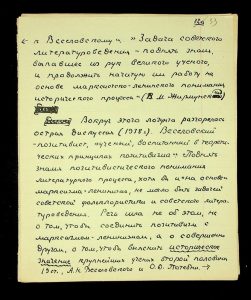 к Веселовскому – "Задача советского
литературоведения – поднять знамя,
выпавшее из рук великого ученого,
и продолжить начатую им работу на
основе марксистско-ленинского понимания
исторического процесса" (В.М. Жирмунский
Вокруг этого лозунга разгорелась
острая дискуссия (1938г.). Веселовский
-позитивист, ученый, воспитанный в теорети-
ческих принципах позитивизма. Поднять
знамя позитивистического понимания
литературного процесса, хотя бы и на основе
марксизма-ленинизма, не могло быть задачей
советской фольклористики и советского литера-
туроведения. Речь шла не об этом, не
о том, чтобы соединить позитивизм с
марксизмом-ленинизмом, а о совершенно
другом, о том, чтобы выяснить историческое
значение крупнейших ученых второй половины
19 ст., А.Н. Веселовского и О.О. Потебни. →